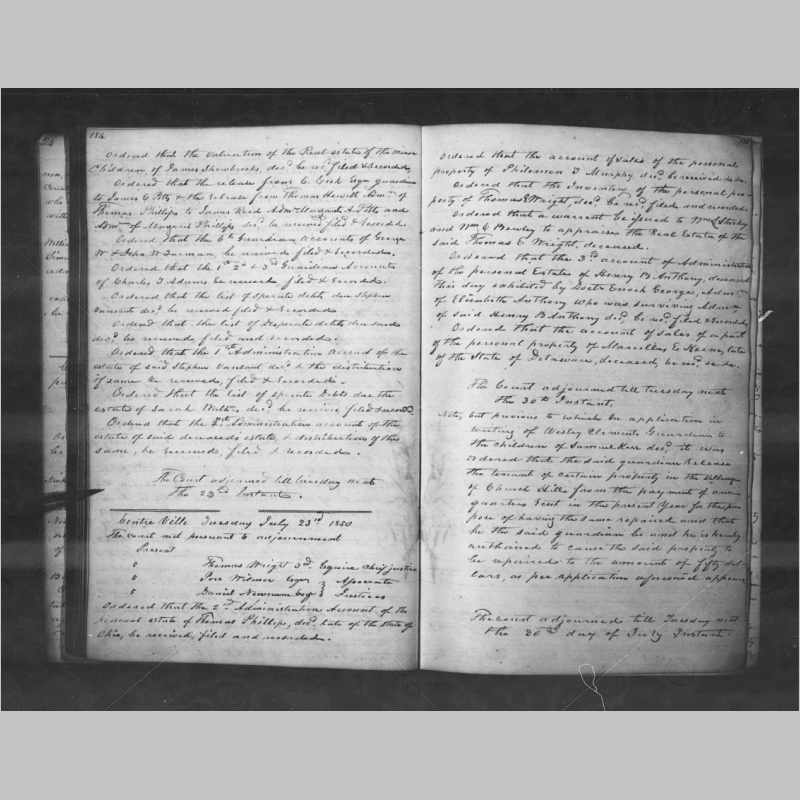 184
Ordered that the valuation of the Real estate of the minor
Children of James Shawbrooks, decd be recd filed & recorded,
Ordered that the release from C. Cook Esqr guardian
to James C. Pitts & the release from Thomas Hewitt Admr of
Thomas Phillips to James Reed Admr Margaret A. Pitts and
Admr of Margaret Phillips decd be received filed & recorded.
Ordered that the 6th Guardian Accounts of George
W & John W Turman, be received filed & recorded.
Ordered that the 1st 2d & 3d Guardians Accounts
of Charles T Adams be received, filed & recorded.
Ordered that the list of sperate debts due Stephen
Vansant decd be received filed & recorded
Ordered that the list of desperate debts due said
decd be received, filed and recorded.
Ordered that the 1st Administration account of the
estate of said Stephen Vansant decd & the distribution
of same be received, filed & recorded.
Ordered that the list of sperate debts due the
estate of Sarah decd be receive filed & record
Ordered that the Administration account of the
estate of said deceaseds estate, & distribution of the
same, be received, filed & recorded.
The Court adjourned till tuesday next
The 23rd Instant.
Centre Ville Tuesday July 23rd 1850
The court met pursuant to adjournment
Present
Thomas Wright 3d. Esquire chief justice
Esqr } Associate
Daniel Newnam Esqr } Justices
Ordered that the 2d Administration Account of the
personal estate of Thomas Phillips, decd, late of the state of
Ohio, be received, filed and recorded.
Ordered that the account of sales of the personal
property of Philemon T Murphy decd be received &c &c.
Ordered that the Inventory of the personal pro-
perty of Thomas E Wright, decd be recd filed and recorded
Ordered that a warrant be issued to Wm
and Wm C to appraise the Real Estate of the
said Thomas E Wright, deceased.
Ordered that the 3rd account of Administration
of the personal Estates of Henry B Anthony, deceased
this day exhibited by Doctr Enoch George, Admr
of Elizabeth Anthony who was surviving Admx
of said Henry B Anthony decd be recd filed & recorded
Ordered that the account of sales of a part
of the personal property of Marcellus E Keene, late
of the State of Delaware, deceased, be recd &c &c.
The Court adjourned till tuesday next
the 30th Instant,
Note, but previous to which on application in
writing of Wesley Clements Guardian to
the children of Samuel Kerr decd it was
ordered that the said guardian release
the tenant of certain property in the village
of Church Hill from the payment of one
quarters rent in the present year for the pur-
pose of having the same repaired and that
he the said guardian be and he is hereby
authorized to cause the said property to
be repaired to the amount of fifty dol-
lars, as per application aforesaid appears
The court adjourned till Tuesday next
the 30th day of July Instant.